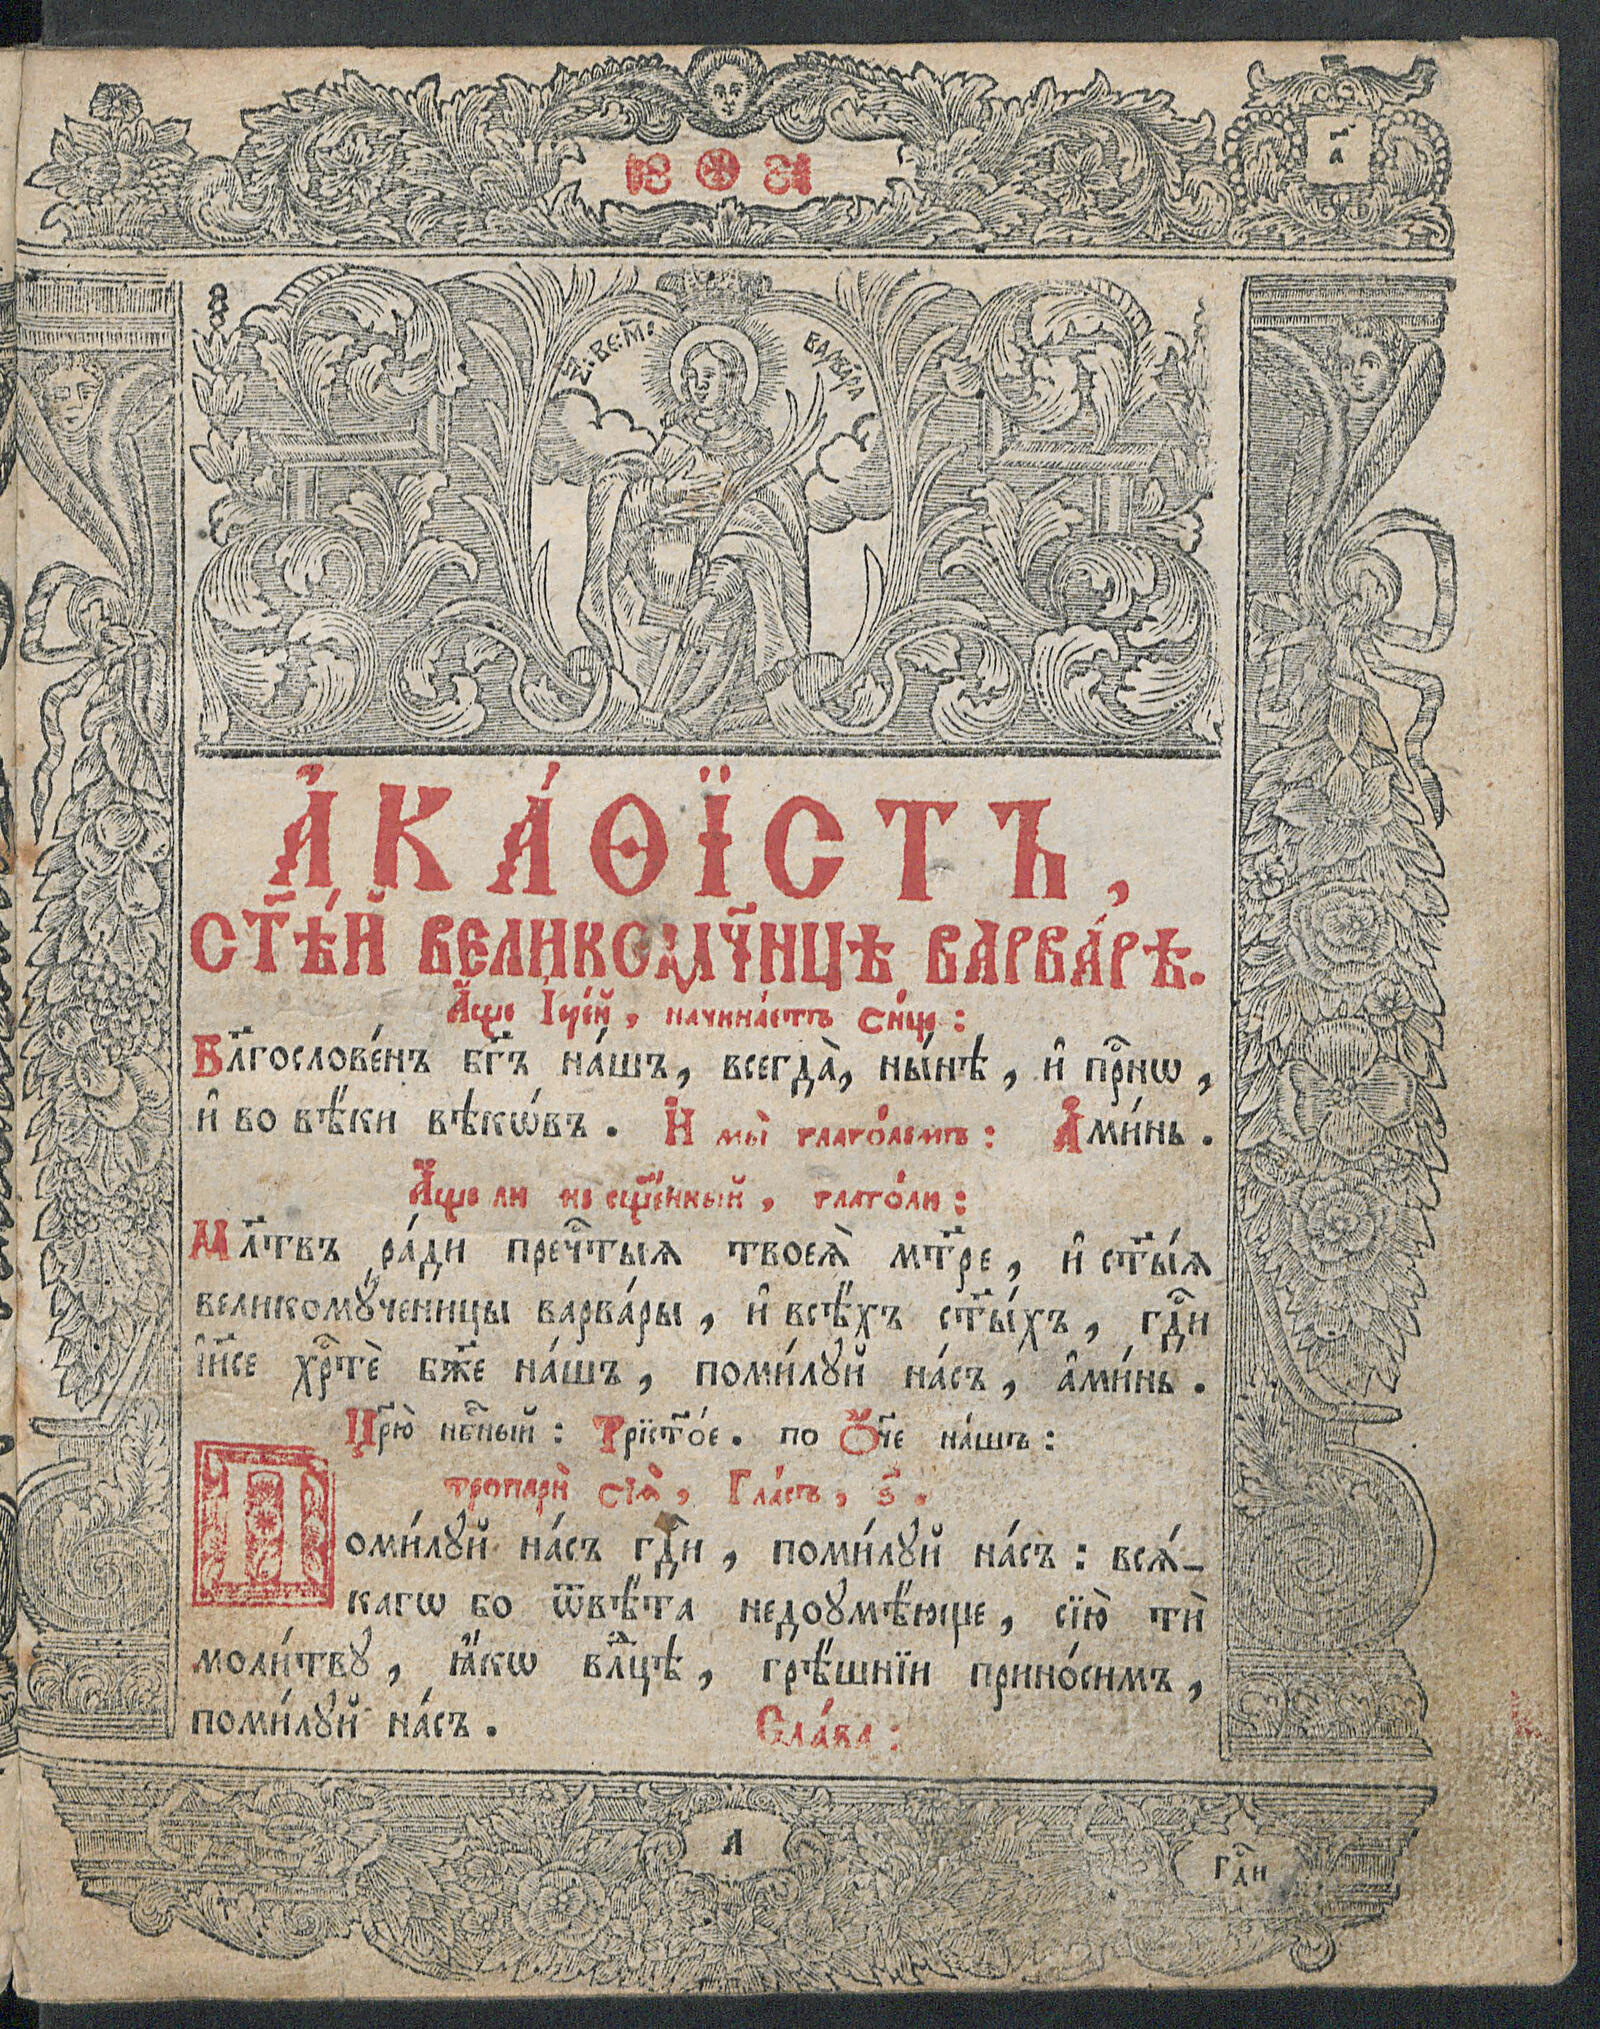 а҃
С: ВЕ: М҃: ВАРВАРА
А҆КА́ѲЇСТЪ,
СТ҃ѢЙ ВЕЛИКОМЧ҃НЦѢ ВАРВА́РѢ.
А҆́ще І҆ере́й, начина́етъ си́це:
Бл҃гослове́нъ бг҃ъ на́шъ, всегда̀, ны́нѣ, и҆ прⷭ҇нѡ,
и҆ во вѣ́ки вѣкѡ́въ. И҆ мы̀ глаго́лемъ: А҆ми́нь.
А҆́ще ли не сщ҃е́нный, глаго́ли:
Мл҃твъ ра́ди пречⷭты́ѧ твоеѧ̀ мт҃ре, и҆ ст҃ы́ѧ
великомꙋ́ченицы варва́ры, и҆ всѣ́хъ ст҃ы́хъ, гдⷭ҇и
і҆и҃се хрⷭ҇тѐ бж҃е на́шъ, поми́лꙋй на́съ, а҆ми́нь.
Цр҃ю̀ нбⷭ҇ный: Трист҃о́е. по Ѻ҆́ч҃е на́шъ:
тропарѝ сїѧ̀, Гла́съ, ѕ҃.
Поми́лꙋй на́съ гдⷭ҇и, поми́лꙋй на́съ: всѧ́-
кагѡ бо ѿвѣ́та недоꙋмѣ́юще, сїю̀ тѝ
моли́твꙋ, ꙗ҆́кѡ влⷣцѣ, грѣ́шнїи прино́симъ,
поми́лꙋй на́съ. Сла́ва:
А
Гдⷭ҇и